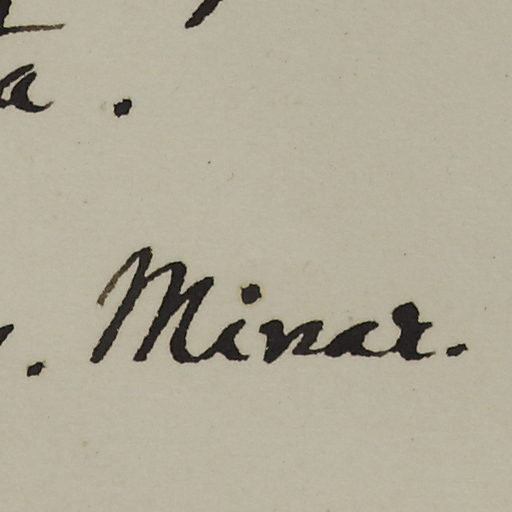 a.
. Minar.